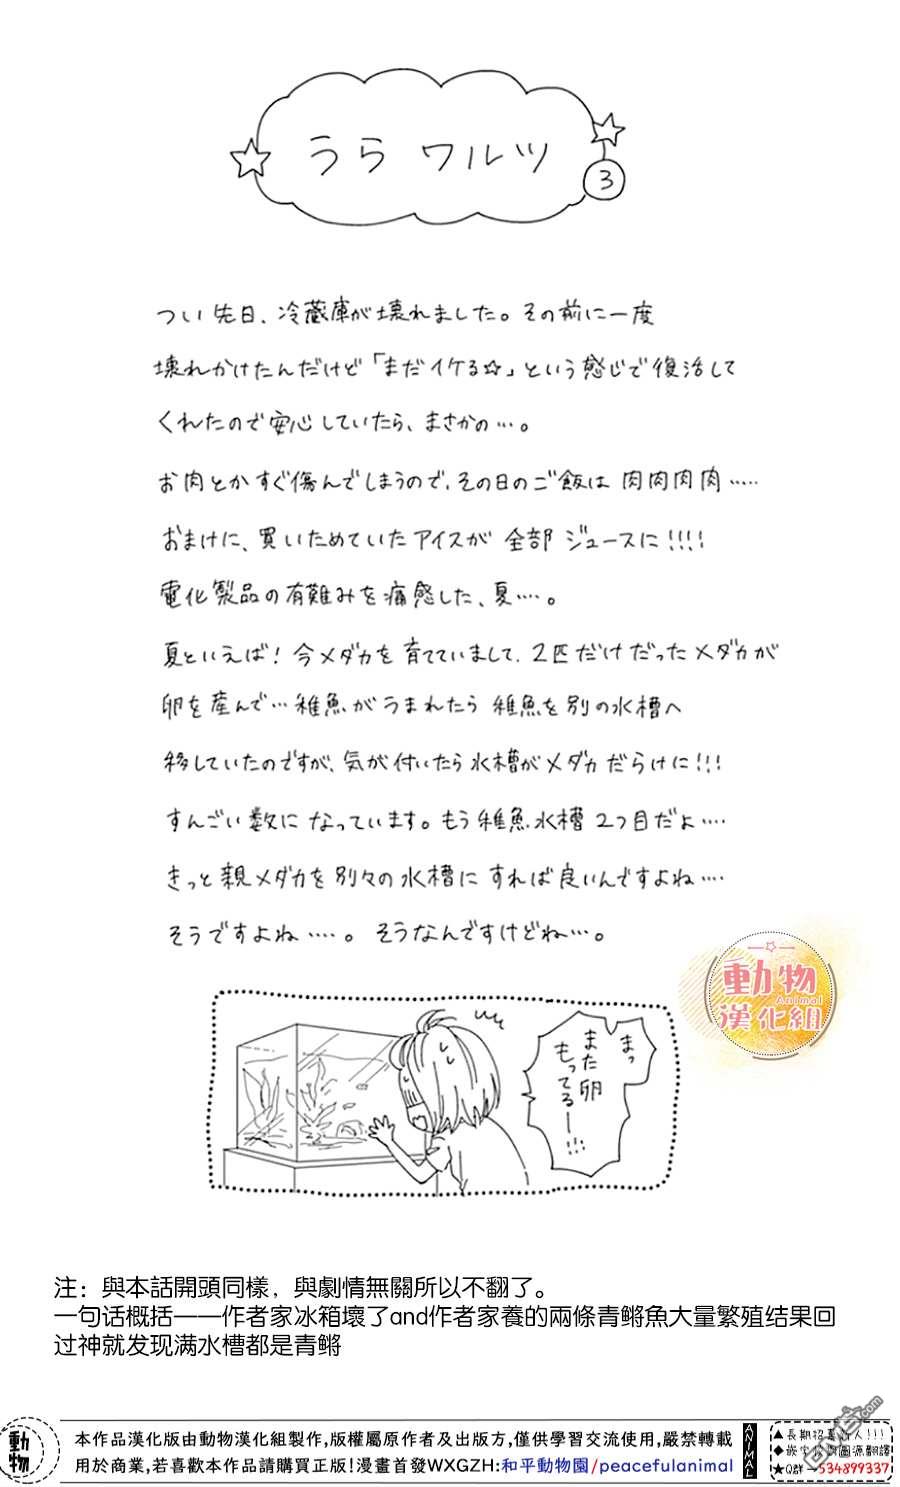 うら ワルツ
3
つい先日、冷蔵庫が壊れました。その前に一度
壊れかけたんだけど「まだイケる☆」という感じで復活して
くれたので安心していたら、まさかの…。
お肉とかすぐ傷んでしまうので、その日のご飯は肉肉肉肉……
おまけに、買いためていたアイスが全部ジュースに!!!!
電化製品の有難みを痛感した、夏….。
夏といえば!今メダカを育てていまして、2匹だけだったメダカが
卵を産んで…稚魚がうまれたら稚魚を別の水槽へ
移していたのですが、気が付いたら水槽がメダカだらけに!!!
すんごい数になっています。もう稚魚水槽2つ目だよ….
きっと親メダカを別々の水槽にすれば良いんですよね….
そうですよね…..。そうなんですけどね…。
まっ
また卵
もってるー!!!
動物
Animal
漢化組
注：與本話開頭同樣，與劇情無關所以不翻了。
一句话概括——作者家冰箱壞了and作者家養的兩條青鳉魚大量繁殖结果回
过神就发现满水槽都是青鳉
動物
本作品漢化版由動物漢化組製作,版權屬原作者及出版方,僅供學習交流使用,嚴禁轉載
用於商業,若喜歡本作品請購買正版!漫畫首發WXGZH:和平動物園/peacefulanimal
ANIMAL
▲長期招募新人!!!
★Q群→534899337